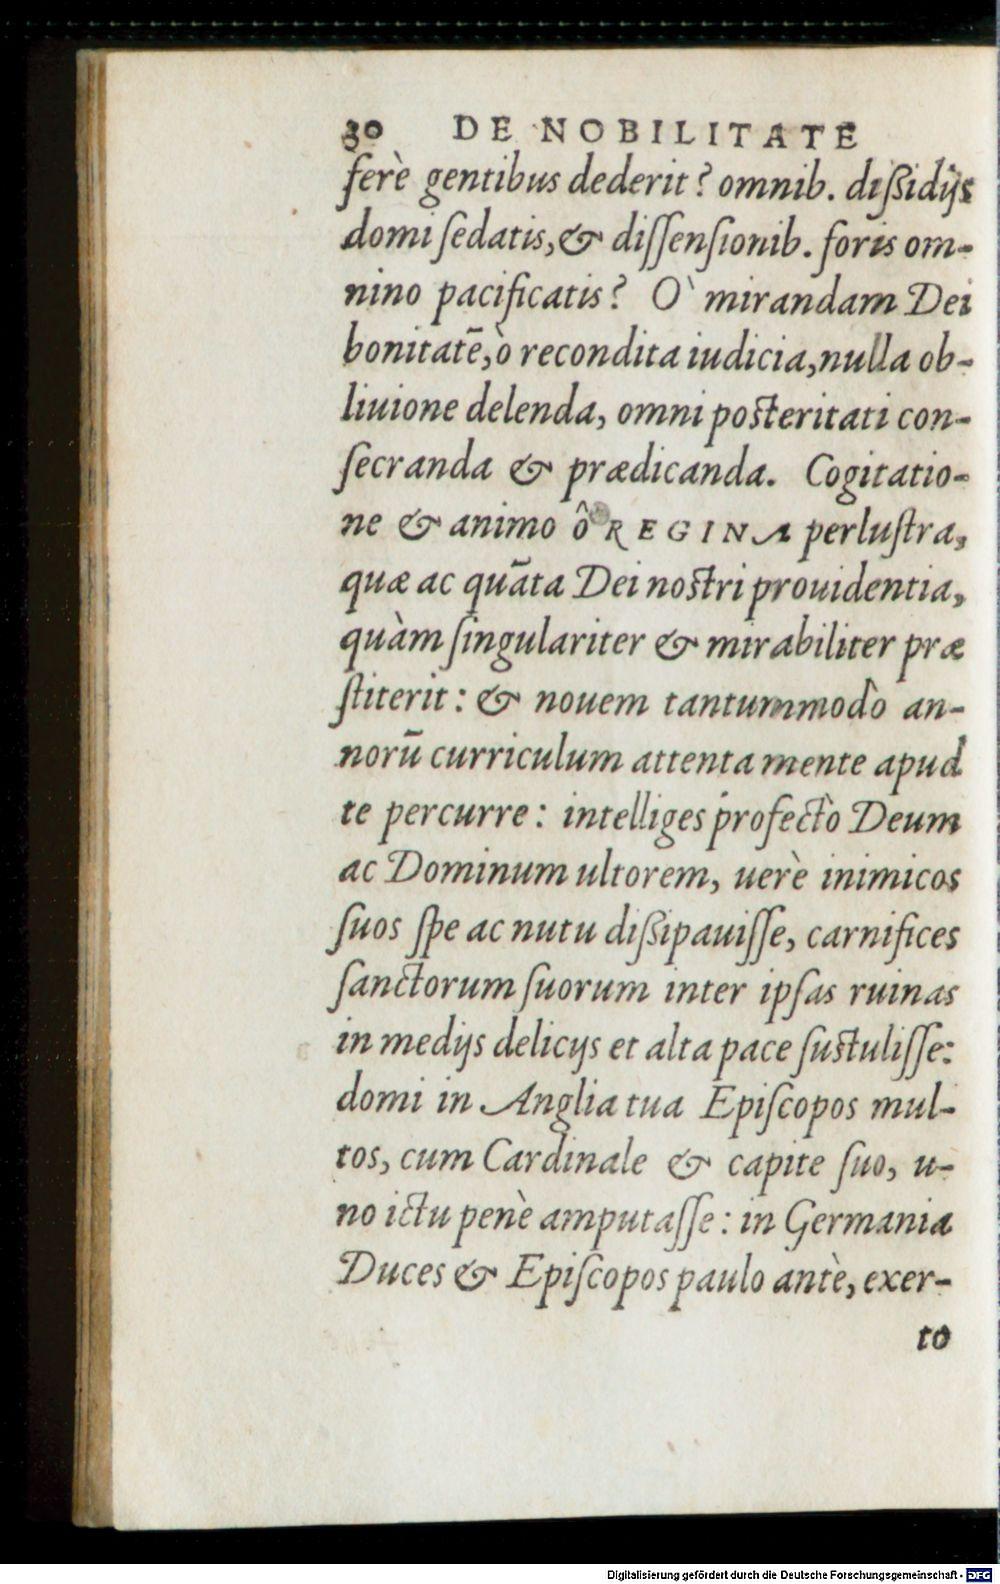 30 DE NOBILITATE
ferè gentibus dederit? omnib. dißidijs
domi ſedatis, & diſſenſionib. foris om-
nino pacificatis? O` mirandam Dei
bonitatē, ò recondita iudicia, nulla ob-
liuione delenda, omni poſteritati con-
ſecranda & prædicanda. Cogitatio-
ne & animo ô REGINA perluſtra,
quæ ac quāta Dei noſtri prouidentia,
quàm ſingulariter & mirabiliter præ
ſtiterit: & nouem tantummodò an-
norū curriculum attenta mente apud
te percurre: intelliges profectò Deum
ac Dominum ultorem, uerè inimicos
ſuos ſpe ac nutu dißipauiſſe, carnifices
ſanctorum ſuorum inter ipſas ruinas
in medijs delicijs et alta pace ſuſtuliſſe:
domi in Anglia tua Epiſcopos mul-
tos, cum Cardinale & capite ſuo, u-
no ictu penè amputaſſe: in Germania
Duces & Epiſcopos paulo antè, exer-
to
Digitalisierung gefördert durch die Deutsche Forschungsgemeinschaft - DFG